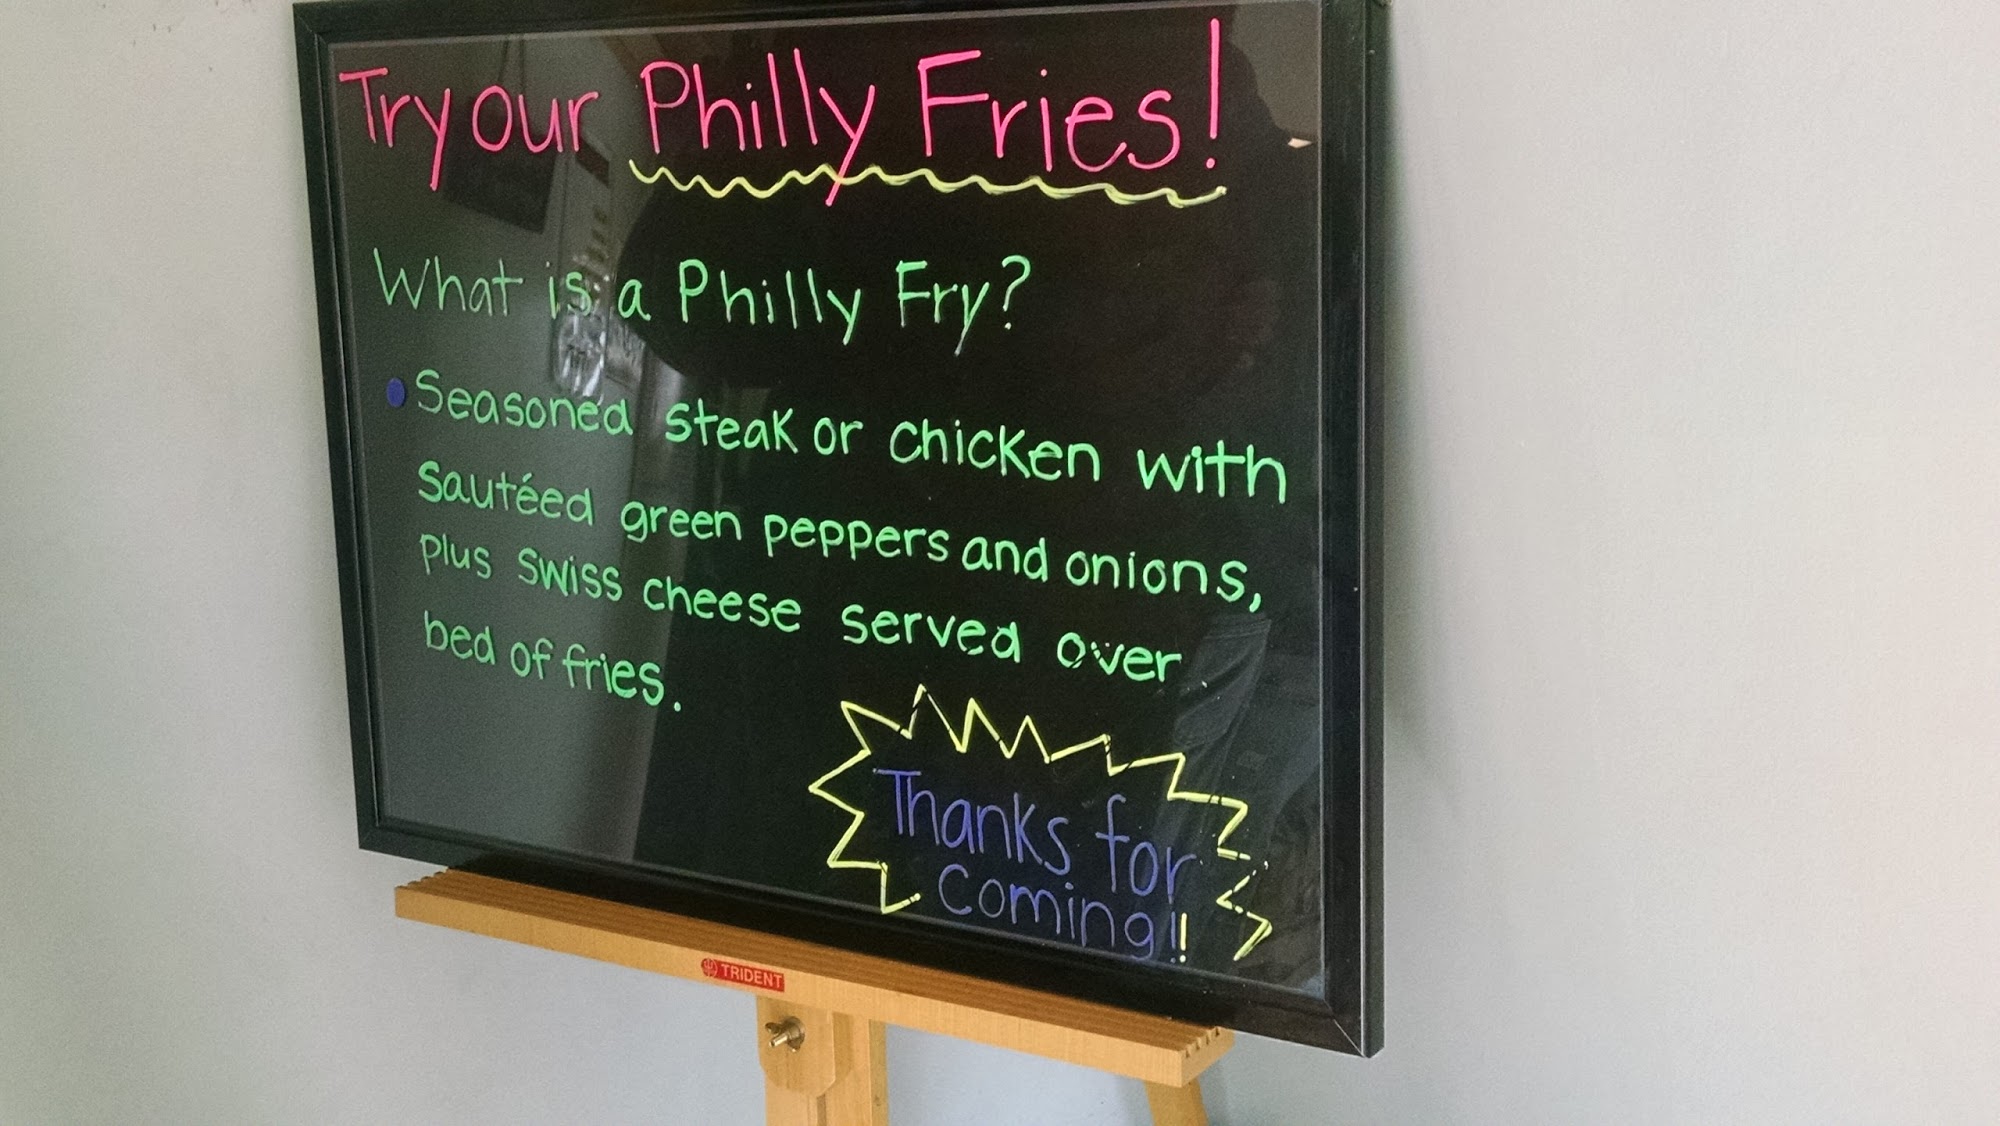 Try our Philly Fries!
What is a Philly Fry?
• Seasoned steak or chicken with
sautéed green peppers and onions,
plus swiss cheese served over
bed of fries.
Thanks for
coming!!
TRIDENT